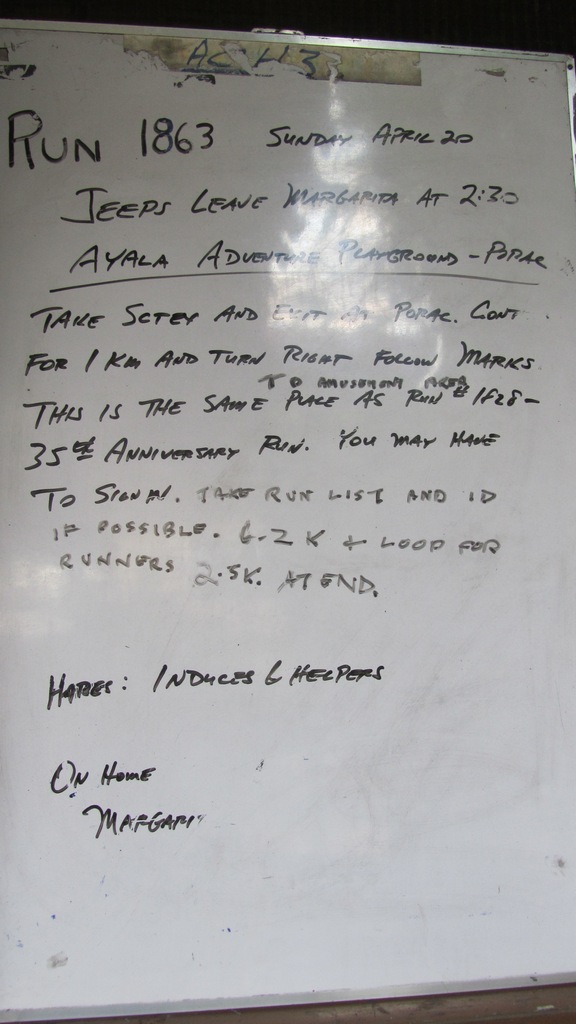 ACH3
RUN 1863 SUNDAY APRIL 20
JEEPS LEAVE MARGARITA AT 2:30
AYALA ADVENTURE PLAYGROUND - PORAC
TAKE SCTEX AND EXIT AT PORAC. CONT.
FOR 1 KM AND TURN RIGHT FOLLOW MARKS
TO AMUSEMENT AREA
THIS IS THE SAME PLACE AS RUN # 1828 -
35th ANNIVERSARY RUN. YOU MAY HAVE
TO SIGN IN. TAKE RUN LIST AND ID
IF POSSIBLE. 6.2 K + LOOP FOR
RUNNERS 2.5K. AT END.
HARES: & HELPERS
ON HOME
MARGARI